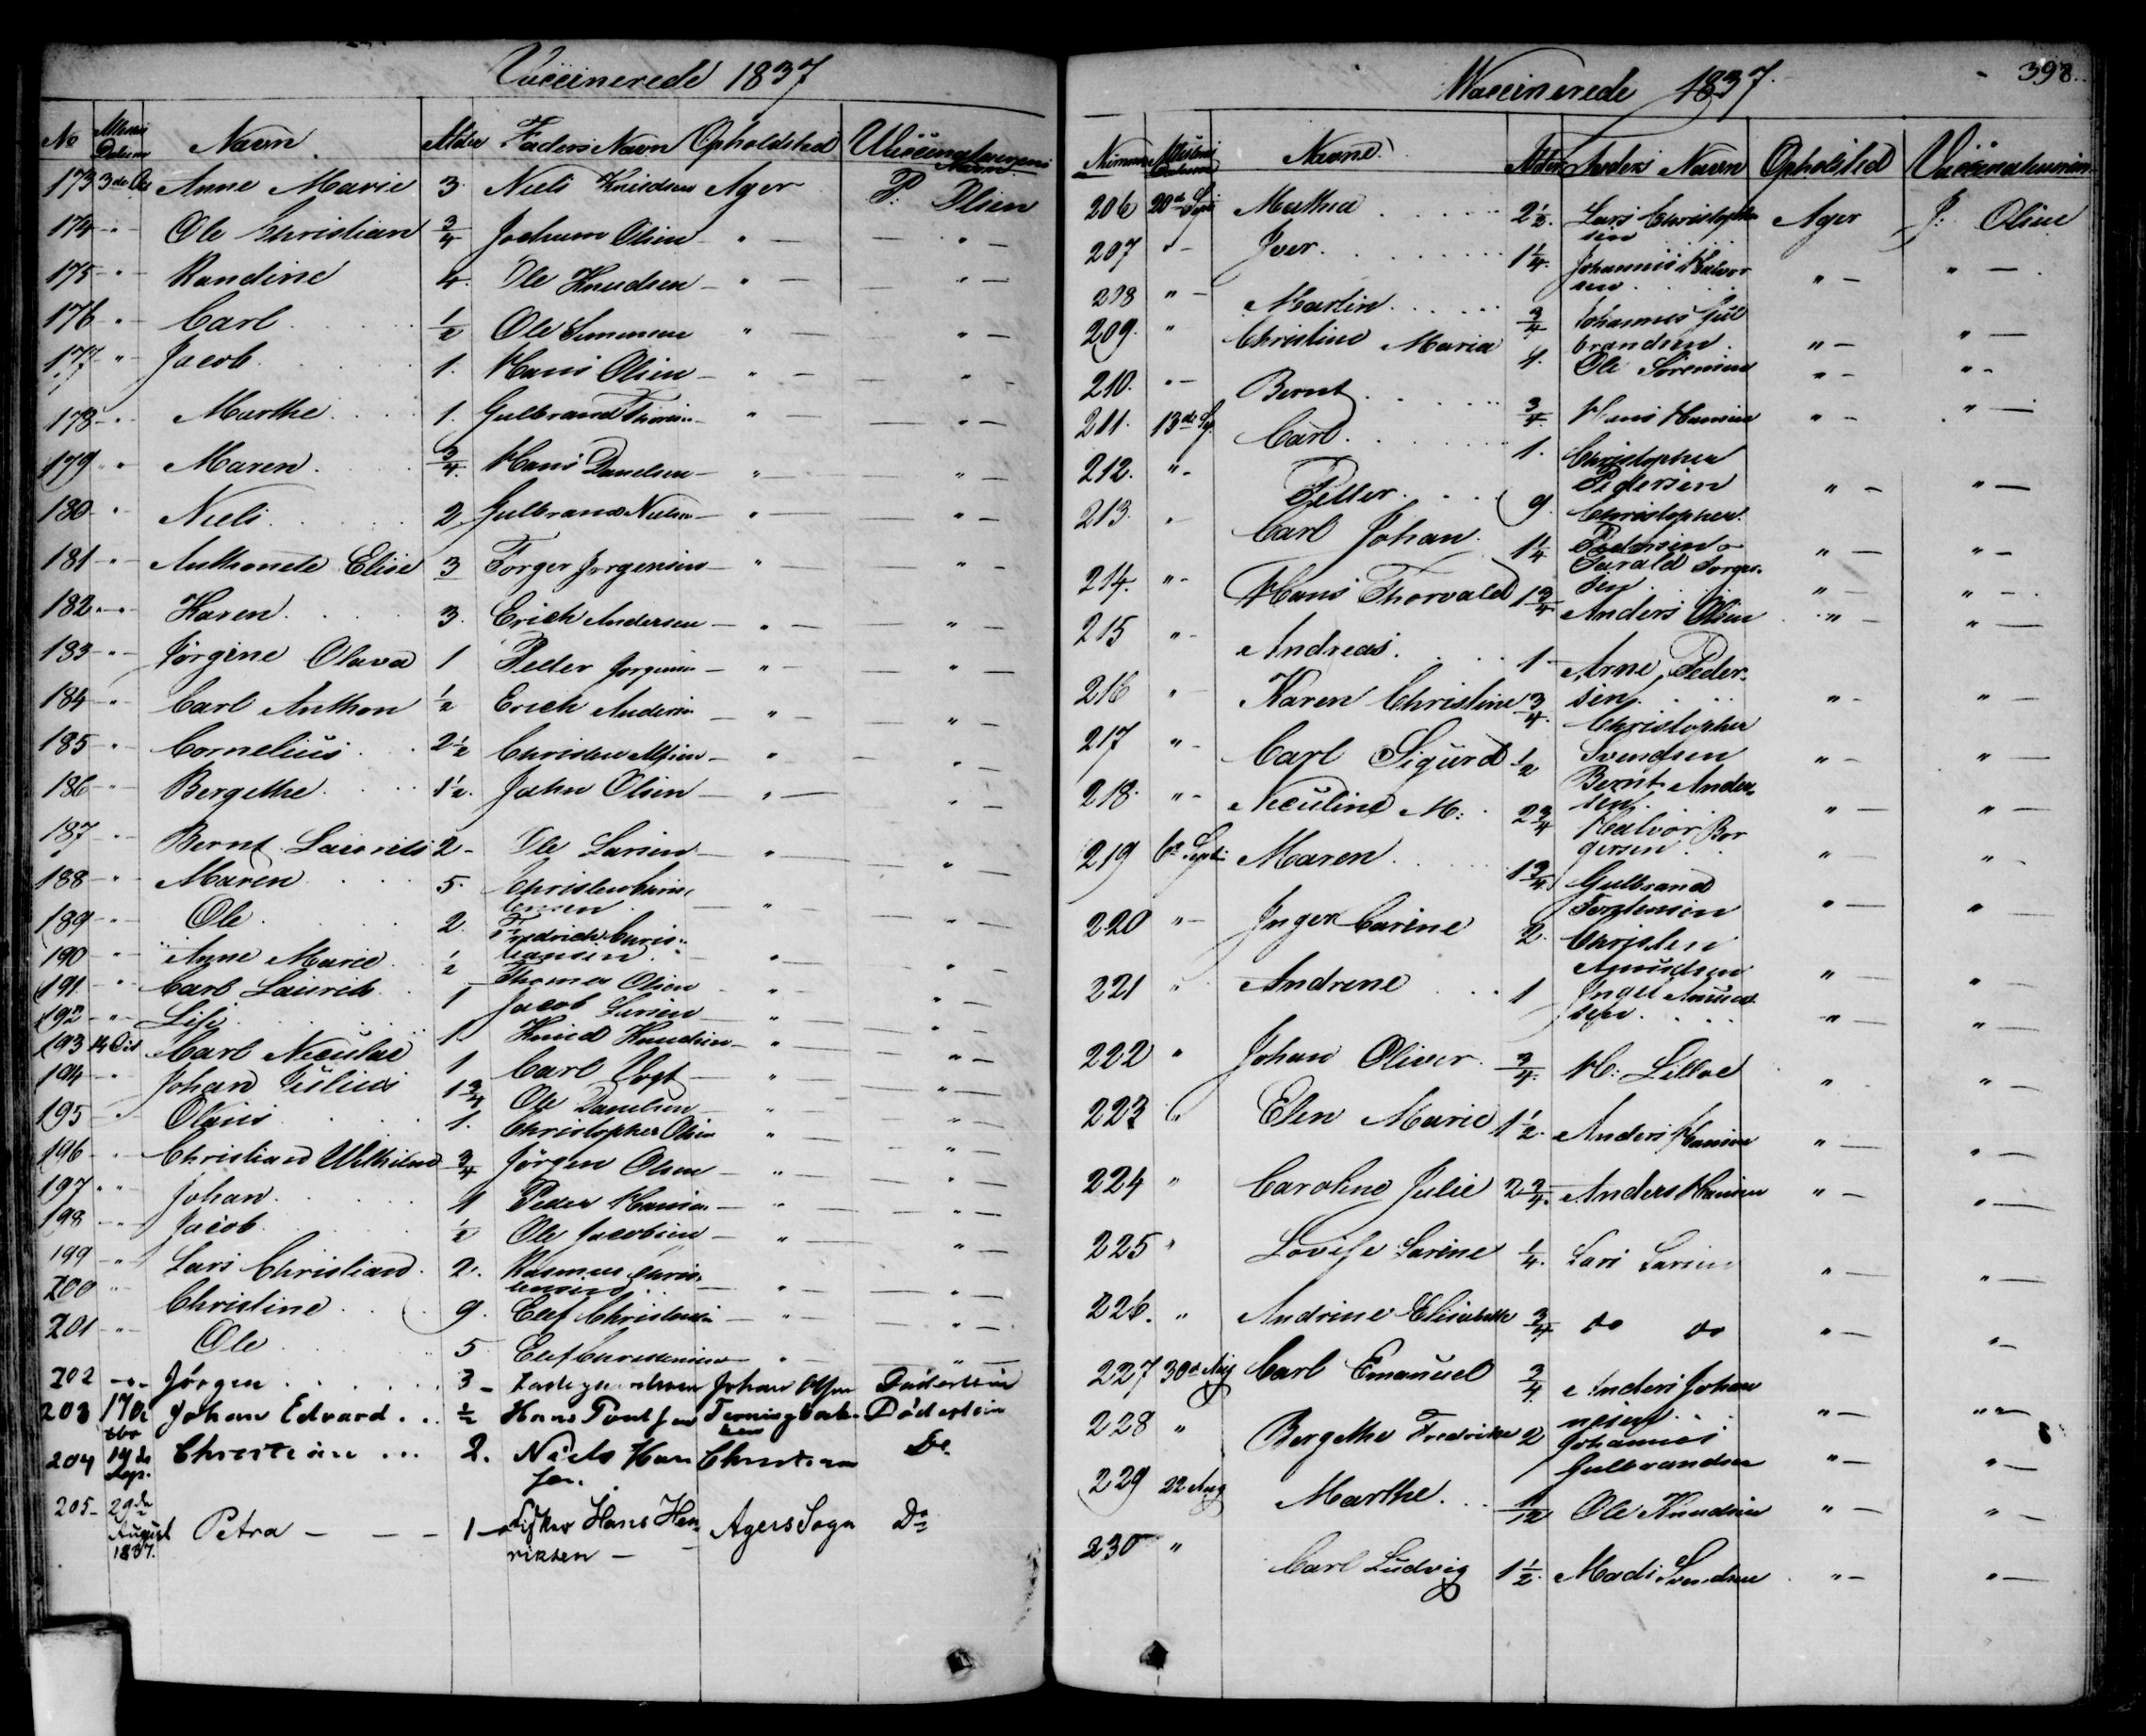 Vaccinerede 1837
No Attestens Datum Navn Alder Faders Navn Opholdsted Vaccinateurens Navn
173 3de Oct Anne Marie 3. Niels Knudsen Ager P: Olsen
174 - " - Ole Christian 3/4 Jochum Olsen - " - - " -
175 - " - Randine 4. Ole Knudsen - " - - " -
176 - " - Carl 1/2 Ole Simensen " - " -
177 - " Jacob 1. Hans Olsen - " - - " -
178 - " - Marthe 1. Gulbrand " - - " -
179 - " Maren 3/4 Hans Danelsen - " - " -
180 - " Niels 2. Gulbrand Nielsen - " - " -
181 - " - Anthonette Elise 3 Torger Jørgensen - " - " -
182 - " - Karen 3. Erich Andersen - " - - " -
183 - " - Jørgine Olava 1 Peder Jørgensen - " - - " -
184 - " Carl Anthon 1/2 Erich Andersen - " - - " -
185 - " Cornelius 2 1/2 Christen - " - " -
186 - " - Bergethe 1 1/2. John Olsen - " - " -
187 - " Bernt Laurits 2 - Ole Larsen - " - " -
188 - " Maren 5. Christen Chris
tensen - " - - " -
189 - " - Ole 2. Fredrich Chris
tiansen " - - " -
190 - " Anne Marie 1/2 Thomas Olsen - " - " -
191 - " Carl Laurits 1 Jacob Larsen - " - - " -
192 - " - Lise 1. Knud Knudsen - " - " -
193 14 Oct Carl Niculai 1 Carl Vogt - " - " -
194 - " Johan Julius 1 3/4 Ole Danelsen - " - " -
195 - " Olaus 1. Christopher Olsen " - - " -
196 - " Christian Wilhelm 3/4 Jørgen Olsen - " - - " -
197 " " Johan 1 Peder Hansen - " - - " -
198 - " - Jacob 1/2 Ole Jacobsen - " - - " -
199 - " Lars Christian 2. Rasmus Chris
tensen - " - - " -
200 " Christine 9. Elef Christensen - " - - " -
201 - " Ole 5 Elef Christensen - " - " -
202 - " - Jørgen 3 - Johan Olsen Døderlein
203 17 Oc
tbr Johan Edvard ... 1/2 Hans Døderlein
204 19de
Sep. Christiane ... 2. Niels Han
sen. Christiania Do
205 - 29de
August
1837. Petra - - - 1 - Hans Hen
riksen - - Agers Sogn Do
Vaccinerede 1837. 398.
Numer Attestens Datum Navne Alder Faders Navn Opholdsted Vaccinateuren
206 20de Sept Mathea 2 1/2. Lars Christopher
sen Ager P: Olsen
207 " - Iver 1 1/4. Johannes Halvor
sen " - " -
208 " - Martin 3/4 Johannes Gul
brandsen. " - " -
209. " Christine Maria 4. Ole Sørensen " - " -
210. " - Bernt 3/4 Hans Hansen " - " -
211. 13de Sep. Carl 1. Christopher
Pedersen " - " -
212. " - Petter 9. Christopher
Pedersen " - " -
213. " - Carl Johan 1 1/4 Harald Torger
sen " - " -
214. " - Hans Thorvald 1 3/4 Anders Olsen " - " -
215 " - Andreas 1 - Arne Peder
sen " - " -
216 " Karen Christine 3/4. Christopher
Svendsen " - " -
217 " - Carl Sigurd 1/2 Bernt Ander
sen " - " -
218. " - Niculine M: 2 3/4 Halvor Bor
gersen " - " -
219 6te Septbr Maren 1 3/4 Gulbrand
Torstensen " - " -
220 " - Inger Carine 2. Christen
Amundsen " - " -
221 " Andrine 1 Ingel Amund
sen " - " -
222 " Johan Oliver 3/4. H: Lilloe " - " -
223 " Elen Marie 1 1/2. Anders Hansen " - " -
224 " Caroline Julie 2 3/4. Anders Hansen " - " -
225 " Lovise Larine 1/4. Lars Larsen " - " -
226. " Andrine Elisabeth 3/4 do do " - " -
227 30de Aug Carl Emanuel 3/4. Anders Johan
nesen " - " -
228 " Bergethe Fredrikke 2 Johannes
Gulbrandsen " - " -
229 22 Aug Marthe 1/12 Ole Knudsen " - " -
230 " Carl Ludvig 1 1/2. Mads Svendsen " - " -